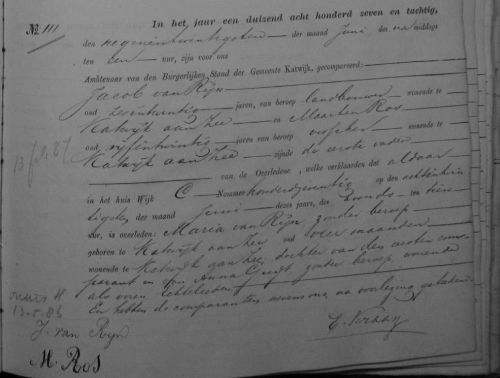 No. 111
In het jaar een duizend acht honderd zeven en tachtig,
den negenentwintigsten der maand Juni des na middags
ten een ure, zijn voor ons
Ambtenaar van den Burgerlijken Stand der Gemeente Katwijk, gecompareerd:
Jacob van Rijn
oud zesentwintig jaren, van beroep landbouwer wonende te
Katwijk aan Zee en Maarten Ros
oud vijfentwintig jaren van beroep visscher wonende te
Katwijk aan Zee zijnde de eerste vader
van de Overledene, welke verklaarden dat aldaar
in het huis Wijk C Nommer honderdzeventig op den achtentwin
tigsten der maand Juni dezes jaars, des avonds ten tien
ure, is overleden: Maria van Rijn zonder beroep
geboren te Katwijk aan Zee oud maanden
wonende te Katwijk aan Zee, dochter van den eersten com
parant en van Anna zonder beroep wonende
als voren, echtelieden
En hebben de comparanten nevens ons, na voorlezing geteekend
J. van Rijn
M. Ros